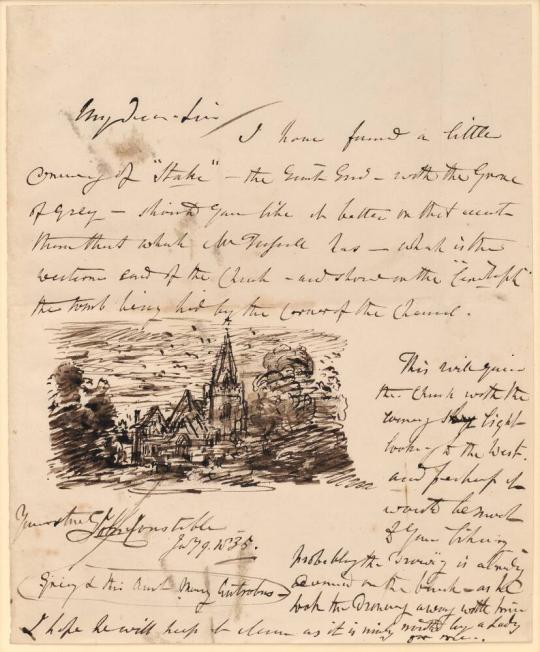 My dear Sir
I have found a little
of "Stoke" – the East End – with the Grave
of Gray – should you like it better on that acct
than that which Mr has – which is the
western end of the Church – and shows the "Cenotaph"
the tomb being hid by the corner of the Chancel.
This will give
the Church with the
evening sky light
looking to the West.
and perhaps it
would be most
to your liking
Yours truly John Constable
July 9. 1835.
Gray & his Aunt Mary Antrobus
probably the Drawing is already
on the block – as he
took the Drawing away with him
I hope he will keep it clean as it is by a Lady
for me.